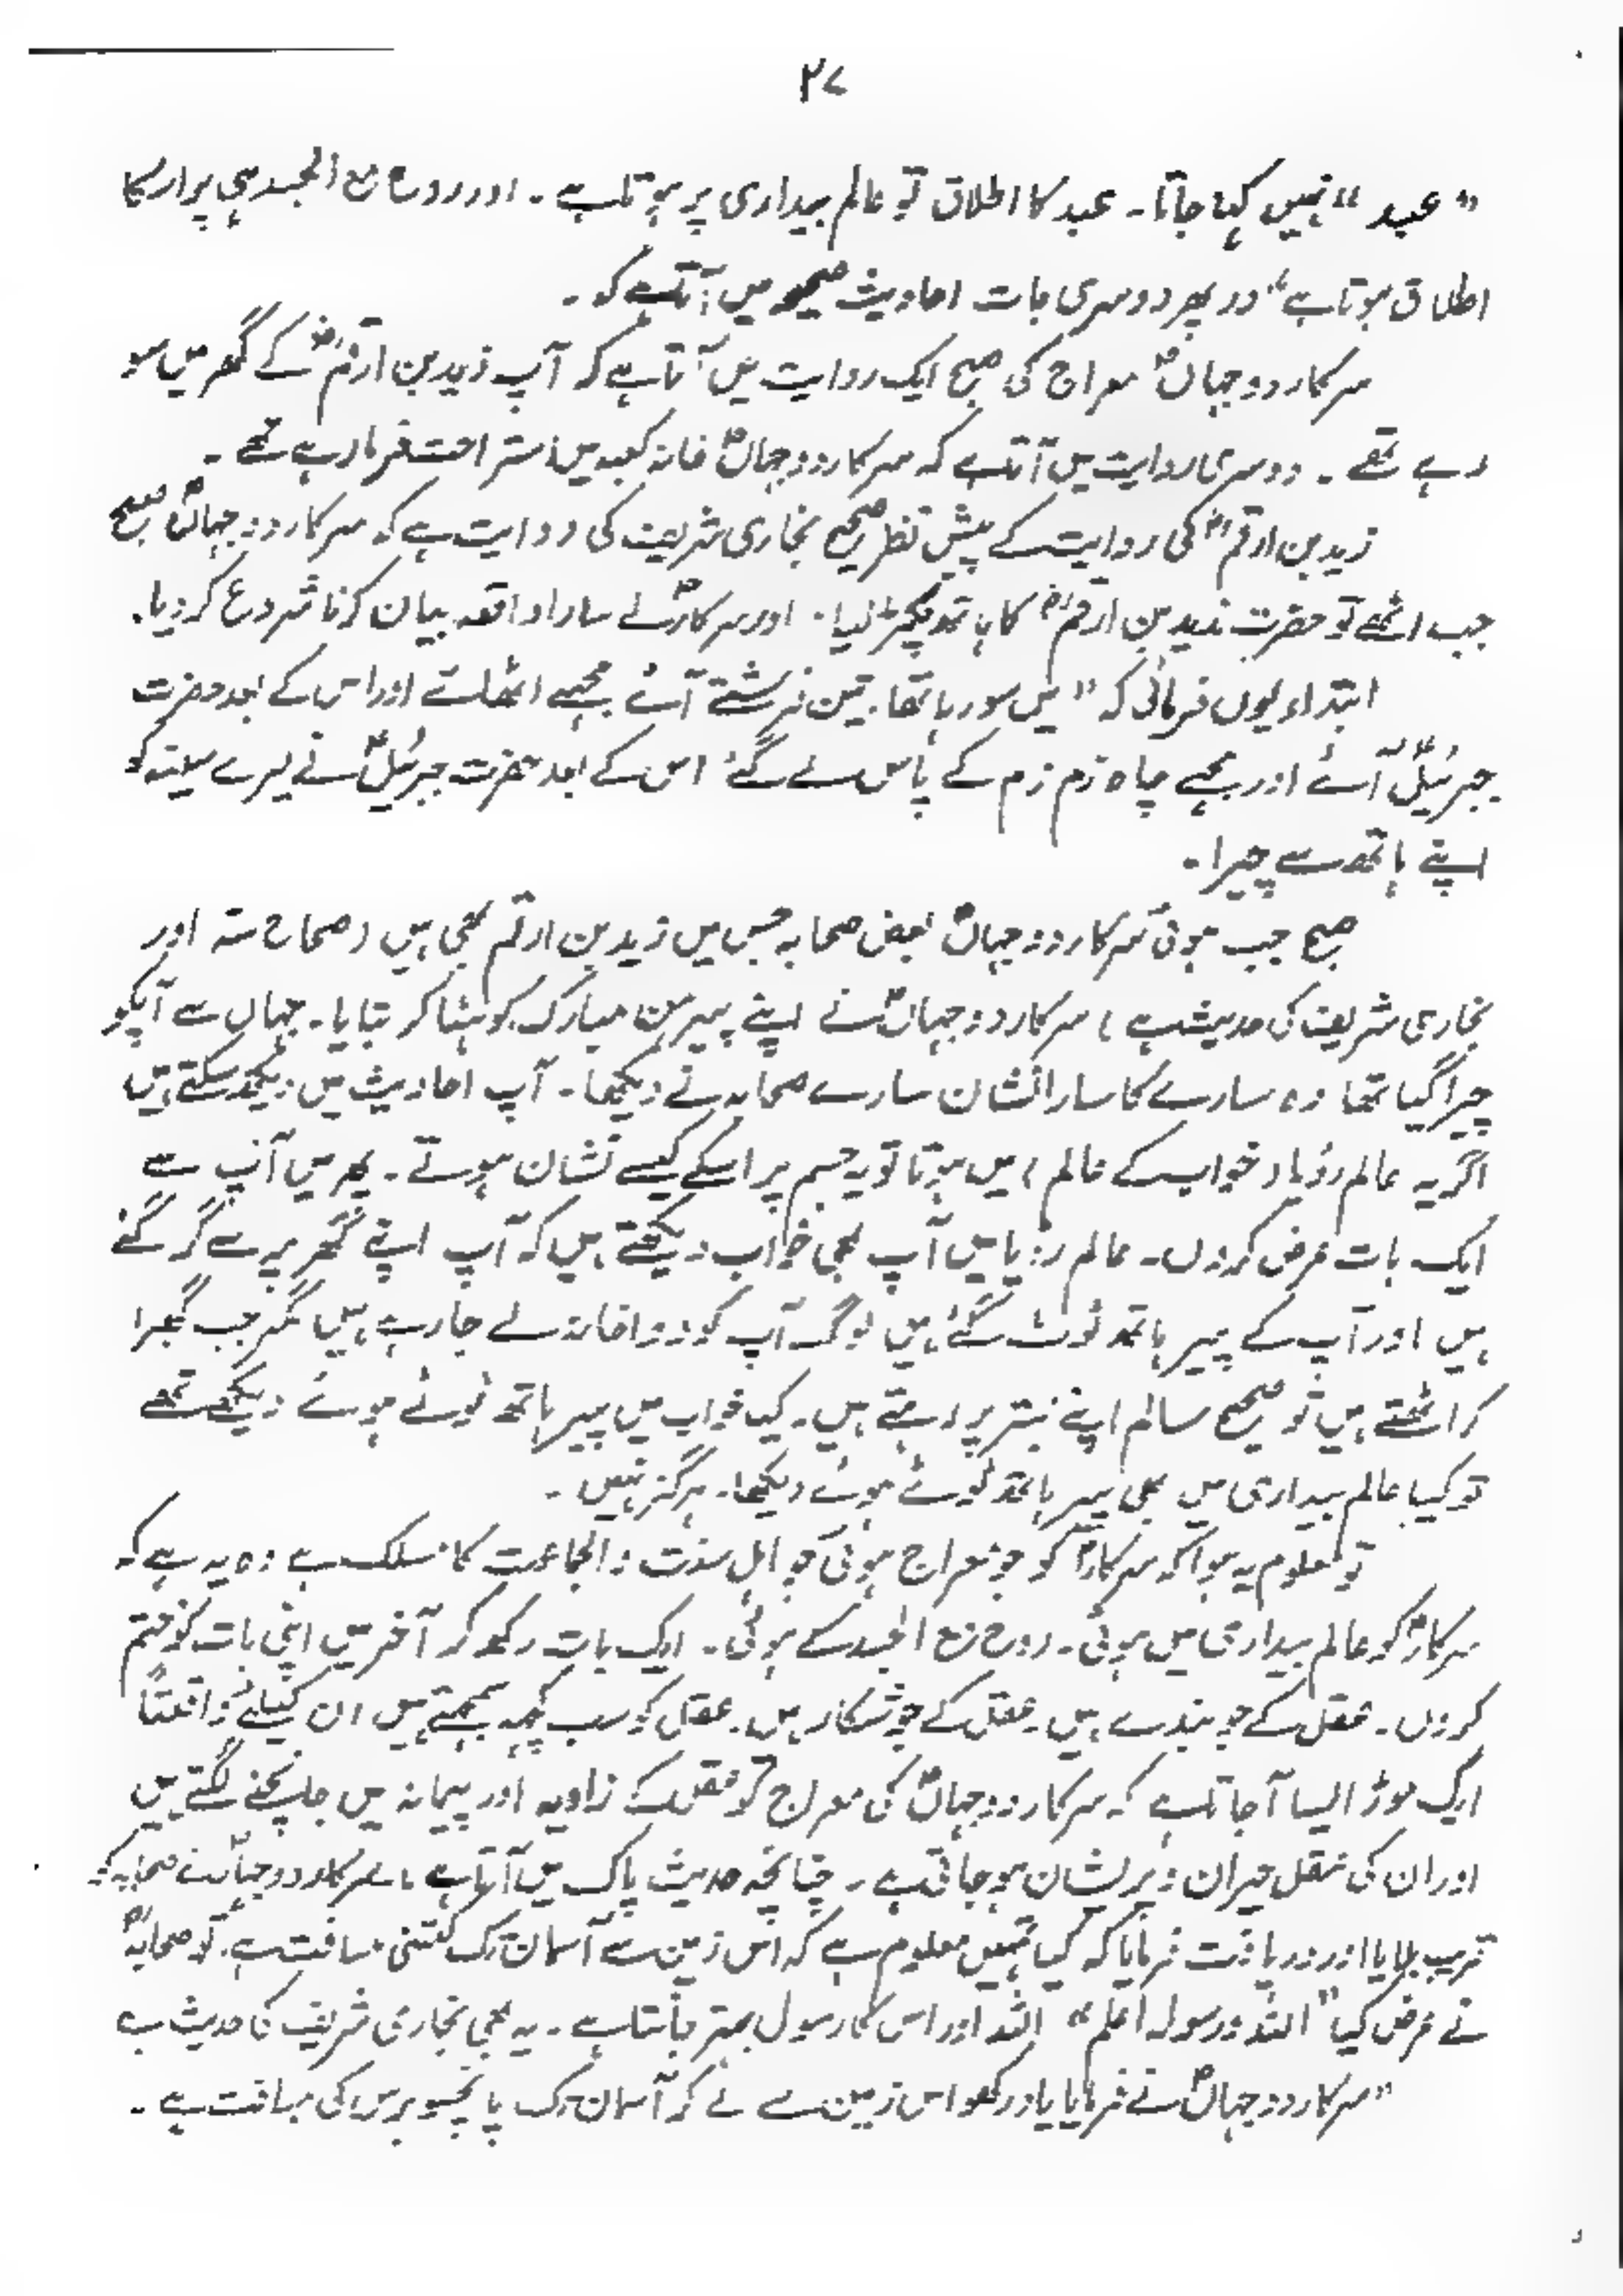 ۲۷
"عبد" نہیں کہا جاتا۔ عبد کا اطلاق تو عالم بیداری پر ہوتا ہے۔ اور روح مع الجسد ہی پر اس کا
اطلاق ہوتا ہے" اور پھر دوسری بات احادیث صحیحہ میں آتا ہے کہ۔
سرکار دوجہاںؐ معراج کی صبح ایک روایت میں آتا ہے کہ آپ زید بن ارقمؓ کے گھر میں سو
رہے تھے۔ دوسری روایت میں آتا ہے کہ سرکار دوجہاںؐ خانہ کعبہ میں استراحت فرما رہے تھے۔
زید بن ارقمؓ کی روایت کے پیش نظر صحیح بخاری شریف کی روایت ہے کہ سرکار دوجہاںؐ صبح
جب اٹھے تو حضرت زید بن ارقمؓ کا ہاتھ پکڑ لیا۔ اور سرکارؐ نے سارا واقعہ بیان کرنا شروع کر دیا۔
ابتداء یوں فرمائی کہ "میں سو رہا تھا۔ تین فرشتے آئے مجھے اٹھائے اور اس کے بعد حضرت
جبرئیلؑ آئے اور مجھے چاہ زم زم کے پاس لے گئے" اس کے بعد حضرت جبرئیلؑ نے میرے سینہ کو
اپنے ہاتھ سے چیرا۔
صبح جب ہوئی سرکار دوجہاںؐ بعض صحابہ جس میں زید بن ارقم بھی ہیں (صحاح ستہ اور
بخاری شریف کی حدیث ہے) سرکار دوجہاںؐ نے اپنے پیرہن مبارک کو ہٹا کر بتایا۔ جہاں سے آپکو
چیرا گیا تھا وہ سارے کا سارا نشان سارے صحابہ نے دیکھا۔ آپ احادیث میں دیکھ سکتے ہیں
اگر یہ عالم رؤیا (خواب کے عالم) میں ہوتا تو یہ جسم پر اسکے کیسے نشان ہوتے۔ پھر میں آپ سے
ایک بات عرض کروں۔ عالم رؤیا میں آپ بھی خواب دیکھتے ہیں کہ آپ اپنے گھر پر سے گر گئے
ہیں اور آپ کے پیر ہاتھ ٹوٹ گئے ہیں لوگ آپ کو دواخانہ لے جا رہے ہیں مگر جب گھبرا
کر اٹھتے ہیں تو صحیح سالم اپنے بستر پر رہتے ہیں۔ کیا خواب میں پیر ہاتھ ٹوٹے ہوئے دیکھے تھے
تو کیا عالم بیداری میں بھی پیر ہاتھ ٹوٹے ہوئے دیکھا۔ ہرگز نہیں۔
تو معلوم یہ ہوا کہ سرکارؐ کو جو معراج ہوئی جو اہل سنت والجماعت کا مسلک ہے وہ یہ ہے کہ
سرکارؐ کو عالم بیداری میں ہوئی۔ روح مع الجسد کے ہوئی۔ ایک بات رکھ کر آخر میں اپنی بات کو ختم
کروں۔ عقل کے جو بندے ہیں۔ عقل کے جو شکار ہیں۔ عقل کو سب کچھ سمجھتے ہیں ان کیلئے واقعتاً
ایک موڑ ایسا آجاتا ہے کہ سرکار دوجہاںؐ کی معراج کو عقل کے زاویہ اور پیمانہ میں جانچنے لگتے ہیں
اور ان کی عقل حیران و پریشان ہوجاتی ہے۔ چنانچہ حدیث پاک میں آتا ہے۔ سرکار دوجہاںؐ نے صحابہ کو
قریب بلایا اور دریافت فرمایا کہ کیا تمہیں معلوم ہے کہ اس زمین سے آسمان تک کتنی مسافت ہے۔ تو صحابہؓ
نے عرض کیا "اللہ ورسولہ اعلم" اللہ اور اس کا رسول بہتر جانتا ہے۔ یہ بھی بخاری شریف کی حدیث ہے
"سرکار دوجہاںؐ نے فرمایا یاد رکھو اس زمین سے لے کر آسمان تک پانچسو برس کی مسافت ہے۔